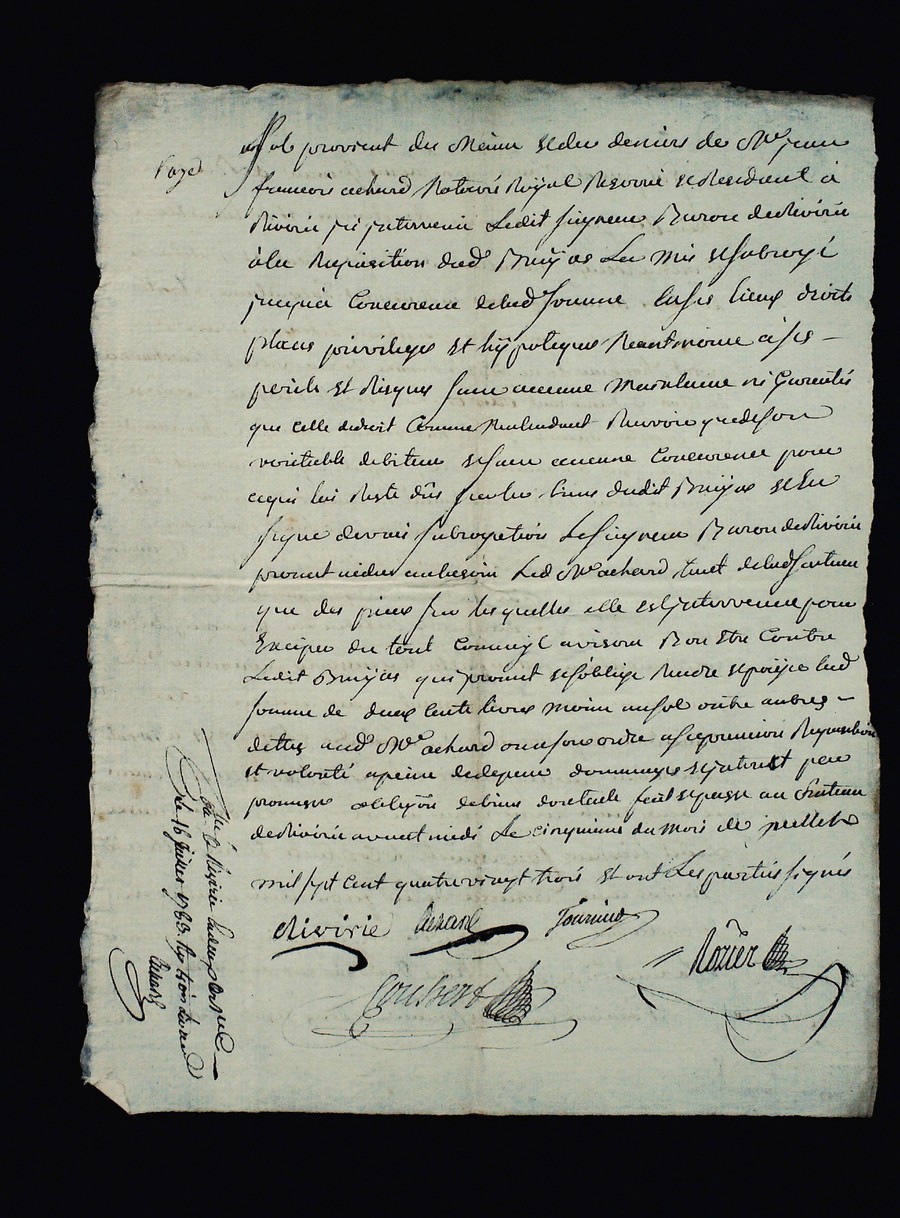 Payé
sol provient du Meme et des deniers de Me jean
francois achard Notaire Royal Reservé et Residant a
Rivirie ici intervenu Ledit seigneur Baron de Rivirie
a la Requisition dud. Bruyas La mis et subrogé
jusqua Concurence de lad. somme en ses lieux droits
places privileges et hypoteques Neantmoins a ses
perils et Risques sans aucune Maintenue ni Garentie
que celle de droit Comme
veritable debiteur et sans aucune Concurence pour
ce qui lui Reste dûs par les dudit Bruyas et du
subrogation Le seigneur Baron de Rivirie
promet au besoin Led. Me achard tant de lad.
que des pieces sur lesquelles elle est intervenue pour
Exciper du tout Comme il avisera Bon Etre Contre
Ledit Bruyas qui promet et s'oblige Rendre et payer lad.
somme de deux cents livres moins un sol outre autres
dettes aud. Me achard ou a son ordre a sa premiere Requisition
et volonté a peine de depens dommages et interest par
promesse obligaon de biens dont acte fait et passé au Chateau
de Rivirie avant midi Le cinquieme du Mois de juillet
mil sept cent quatre vingt trois et ont Les parties signés
Rivirie Achard Fournier
Rozier
Goubert
le 16 juillet 1783.
Achard